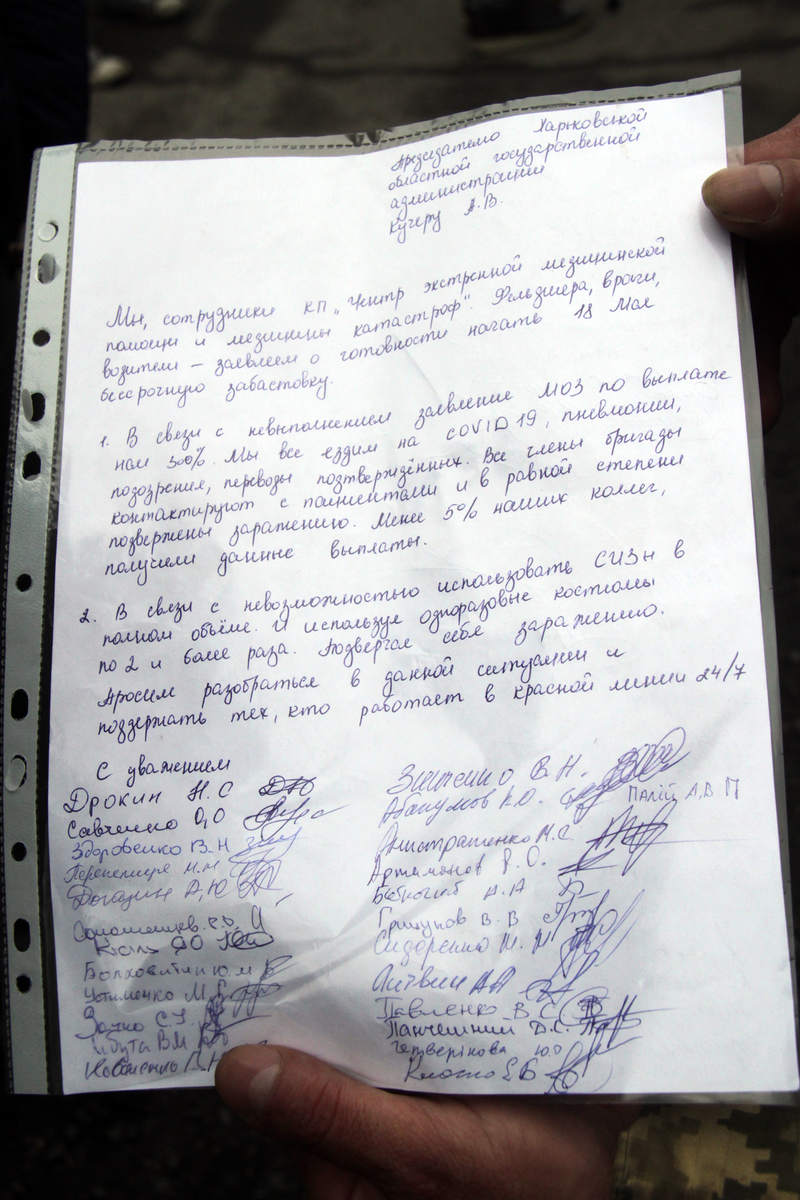 Председателю Харьковской
областной государственной
администрации
Кучеру А.В.
Мы, сотрудники КП „Центр экстренной медицинской
помощи и медицины катастроф". Фельдшера, врачи,
водители – заявляем о готовности начать 18 Мая
бессрочную забастовку.
1. В связи с невыполнением заявление МОЗ по выплате
нам 300%. Мы все ездим на COVID19, пневмонии,
подозрения, переводы подтверждённых. Все члены бригады
контактируют с пациентами и в равной степени
подвержены заражению. Менее 5% наших коллег,
получили данные выплаты.
2. В связи с невозможностью использовать СИЗы в
полном объёме. И используя одноразовые костюмы
по 2 и более раза. Подвергая себя заражению.
Просим разобраться в данной ситуации и
поддержать тех, кто работает в красной линии 24/7
С уважением
Дрокин Н.С
Савченко О,О
Здоровенко В.Н
Перепелица Н.Н
Догадин А,Ю
Кость ЯО
Болховитин Ю.М
Устименко М.
Зайко С.
Цибуля ВМ
Зинченко В.Н.
Абакумов К.О.
ПАЛІЙ А,В П
Онистратенко М.С
Артамонов В.О.
А.А
Гришунов В.В
Сидоренко М.
Литвин АА
Павленко В.С
Панчешний Д.С.
Четверікова Ю.О